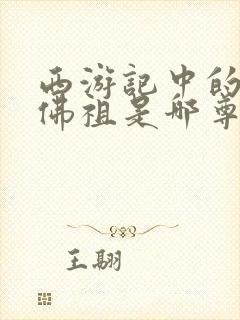 西游記中的
佛祖是哪尊
王翺